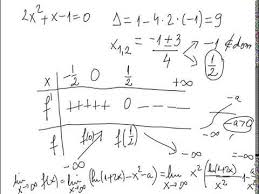 2x² + x - 1 = 0   Δ = 1 - 4·2·(-1) = 9
x₁,₂ = (-1 ± 3)/4 → -1 ∉ dom
1/2
x | -1/2 0 1/2 +∞
f' | +++++ 0 - - -
f | -∞ f(0) f(1/2) -∞
-a
-a>0
lim x→∞ f(x) = lim x→∞ (ln(1+2x) - x² - a) = lim x→∞ x² (ln(1+2x)/x² - 1 - a